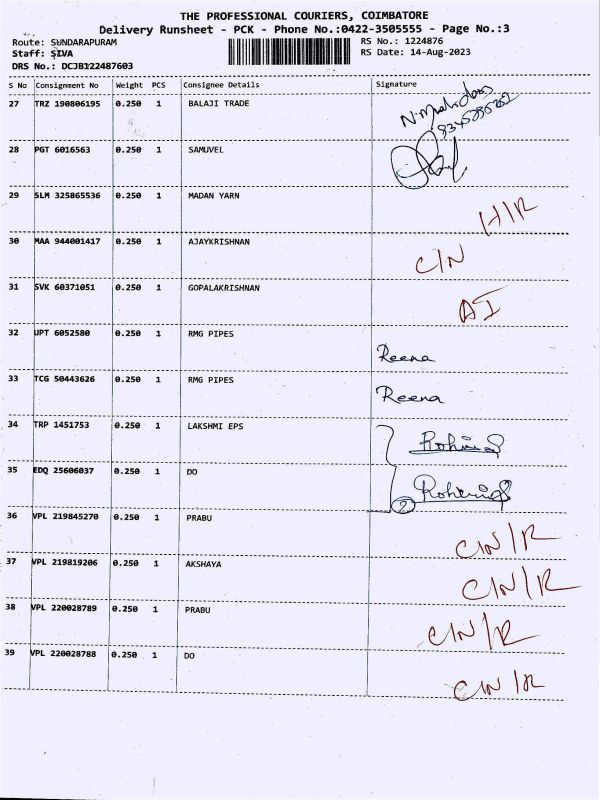 THE PROFESSIONAL COURIERS, COIMBATORE
Delivery Runsheet - PCK - Phone No.:0422-3505555 - Page No.:3
Route: SUNDARAPURAM
RS No.: 1224876
Staff: SIVA
RS Date: 14-Aug-2023
DRS No.: DCJB122487603
S No Consignment No Weight PCS Consignee Details Signature
27 TRZ 190806195 0.250 1 BALAJI TRADE
28 PGT 6016563 0.250 1 SAMUVEL
29 SLM 325865536 0.250 1 MADAN YARN H/R
30 MAA 944001417 0.250 1 AJAYKRISHNAN C/N
31 SVK 60371051 0.250 1 GOPALAKRISHNAN AI
32 UPT 6052580 0.250 1 RMG PIPES Reena
33 TCG 50443626 0.250 1 RMG PIPES Reena
34 TRP 1451753 0.250 1 LAKSHMI EPS
35 EDQ 25606037 0.250 1 DO 2
36 VPL 219845270 0.250 1 PRABU C/N/R
37 VPL 219819206 0.250 1 AKSHAYA C/N/R
38 VPL 220028789 0.250 1 PRABU C/N/R
39 VPL 220028788 0.250 1 DO C/N/R